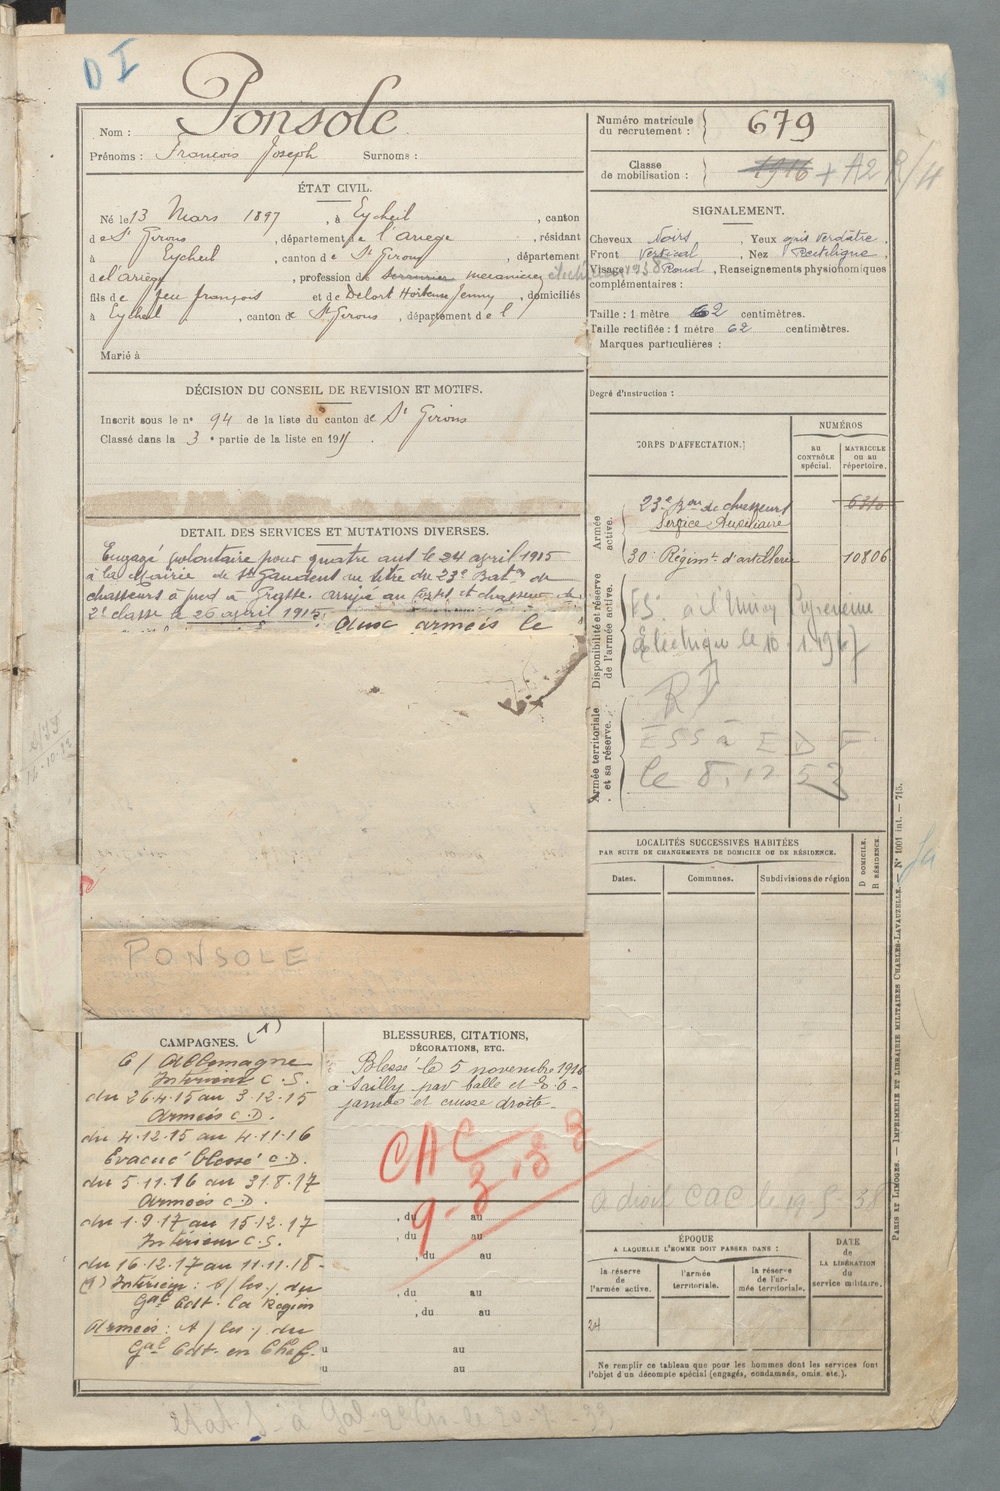 D I
Ponsole
Nom :
Prénoms : François Joseph Surnoms :
Numéro matricule du recrutement : 679
Classe de mobilisation : 1916 + A2 R/4
ÉTAT CIVIL.
Né le 13 Mars 1897, à Eycheil, canton
de St Girons, département de l'Ariège, résidant
à Eycheil, canton de St Girons, département
de l'ariège, profession de serrurier mecanicien
fils de feu françois et de Delort Hortense Jenny, domiciliés
à Eycheil, canton de St Girons, département de l
Marié à
SIGNALEMENT.
Cheveux Noirs, Yeux gris verdâtre,
Front Vertical, Nez Rectiligne,
Visage Rond, Renseignements physionomiques
complémentaires :
Taille : 1 mètre 62 centimètres.
Taille rectifiée : 1 mètre 62 centimètres.
Marques particulières :
Degré d'instruction :
DÉCISION DU CONSEIL DE REVISION ET MOTIFS.
Inscrit sous le n° 94 de la liste du canton de St Girons
Classé dans la 3e partie de la liste en 1915.
CORPS D'AFFECTATION.
NUMÉROS
au CONTRÔLE spécial.
MATRICULE ou au répertoire.
Armée active.
23e Bon de chasseurs 6310
Service Auxiliaire
30e Régimt d'artillerie 10806
Disponibilité et réserve de l'armée active.
électrique le 10.1.1947
R I
Armée territoriale et sa réserve.
ESS à EDF
le 8.12 52
DETAIL DES SERVICES ET MUTATIONS DIVERSES.
Engagé volontaire pour quatre ans le 24 april 1915
à la Mairie de St Gaudens au titre du 23e Baton de
chasseurs à pied à Grasse. arrivé au corps et chasseur de
2e classe le 26 april 1915.
aux armées le
PONSOLE
LOCALITÉS SUCCESSIVES HABITÉES
PAR SUITE DE CHANGEMENTS DE DOMICILE OU DE RÉSIDENCE.
D DOMICILE. R RÉSIDENCE.
Dates. Communes. Subdivisions de région
A droit CAC le 19-5-38
CAMPAGNES. (1)
C/ Allemagne
Intérieur C.S.
du 26.4.15 au 3.12.15
Armées C.D.
du 4.12.15 au 4.11.16
Evacué blessé C.D.
du 5.11.16 au 31.8.17
Armées C.D.
du 1.9.17 au 15.12.17
Intérieur C.S.
du 16.12.17 au 11.11.18-
(1) Intérieur : A/ du
Gal Cdt. la Région
Armées : A/ du
Gal Cdt. en Chef.
BLESSURES, CITATIONS,
DÉCORATIONS, ETC.
Blessé le 5 novembre 1916
à Sailly par balle et E.O-
jambe et cuisse droite.
CAC
9-3-38
, du au
, du au
, du au
, du au
, du au
u au
u au
ÉPOQUE
A LAQUELLE L'HOMME DOIT PASSER DANS :
la réserve de l'armée active.
l'armée territoriale.
la réserve de l'armée territoriale.
DATE de LA LIBÉRATION du service militaire.
24
Ne remplir ce tableau que pour les hommes dont les services font
l'objet d'un décompte spécial (engagés, condamnés, omis, etc.).
PARIS ET LIMOGES. — IMPRIMERIE ET LIBRAIRIE MILITAIRES CHARLES-LAVAUZELLE. — N° 1001 int. — 715.